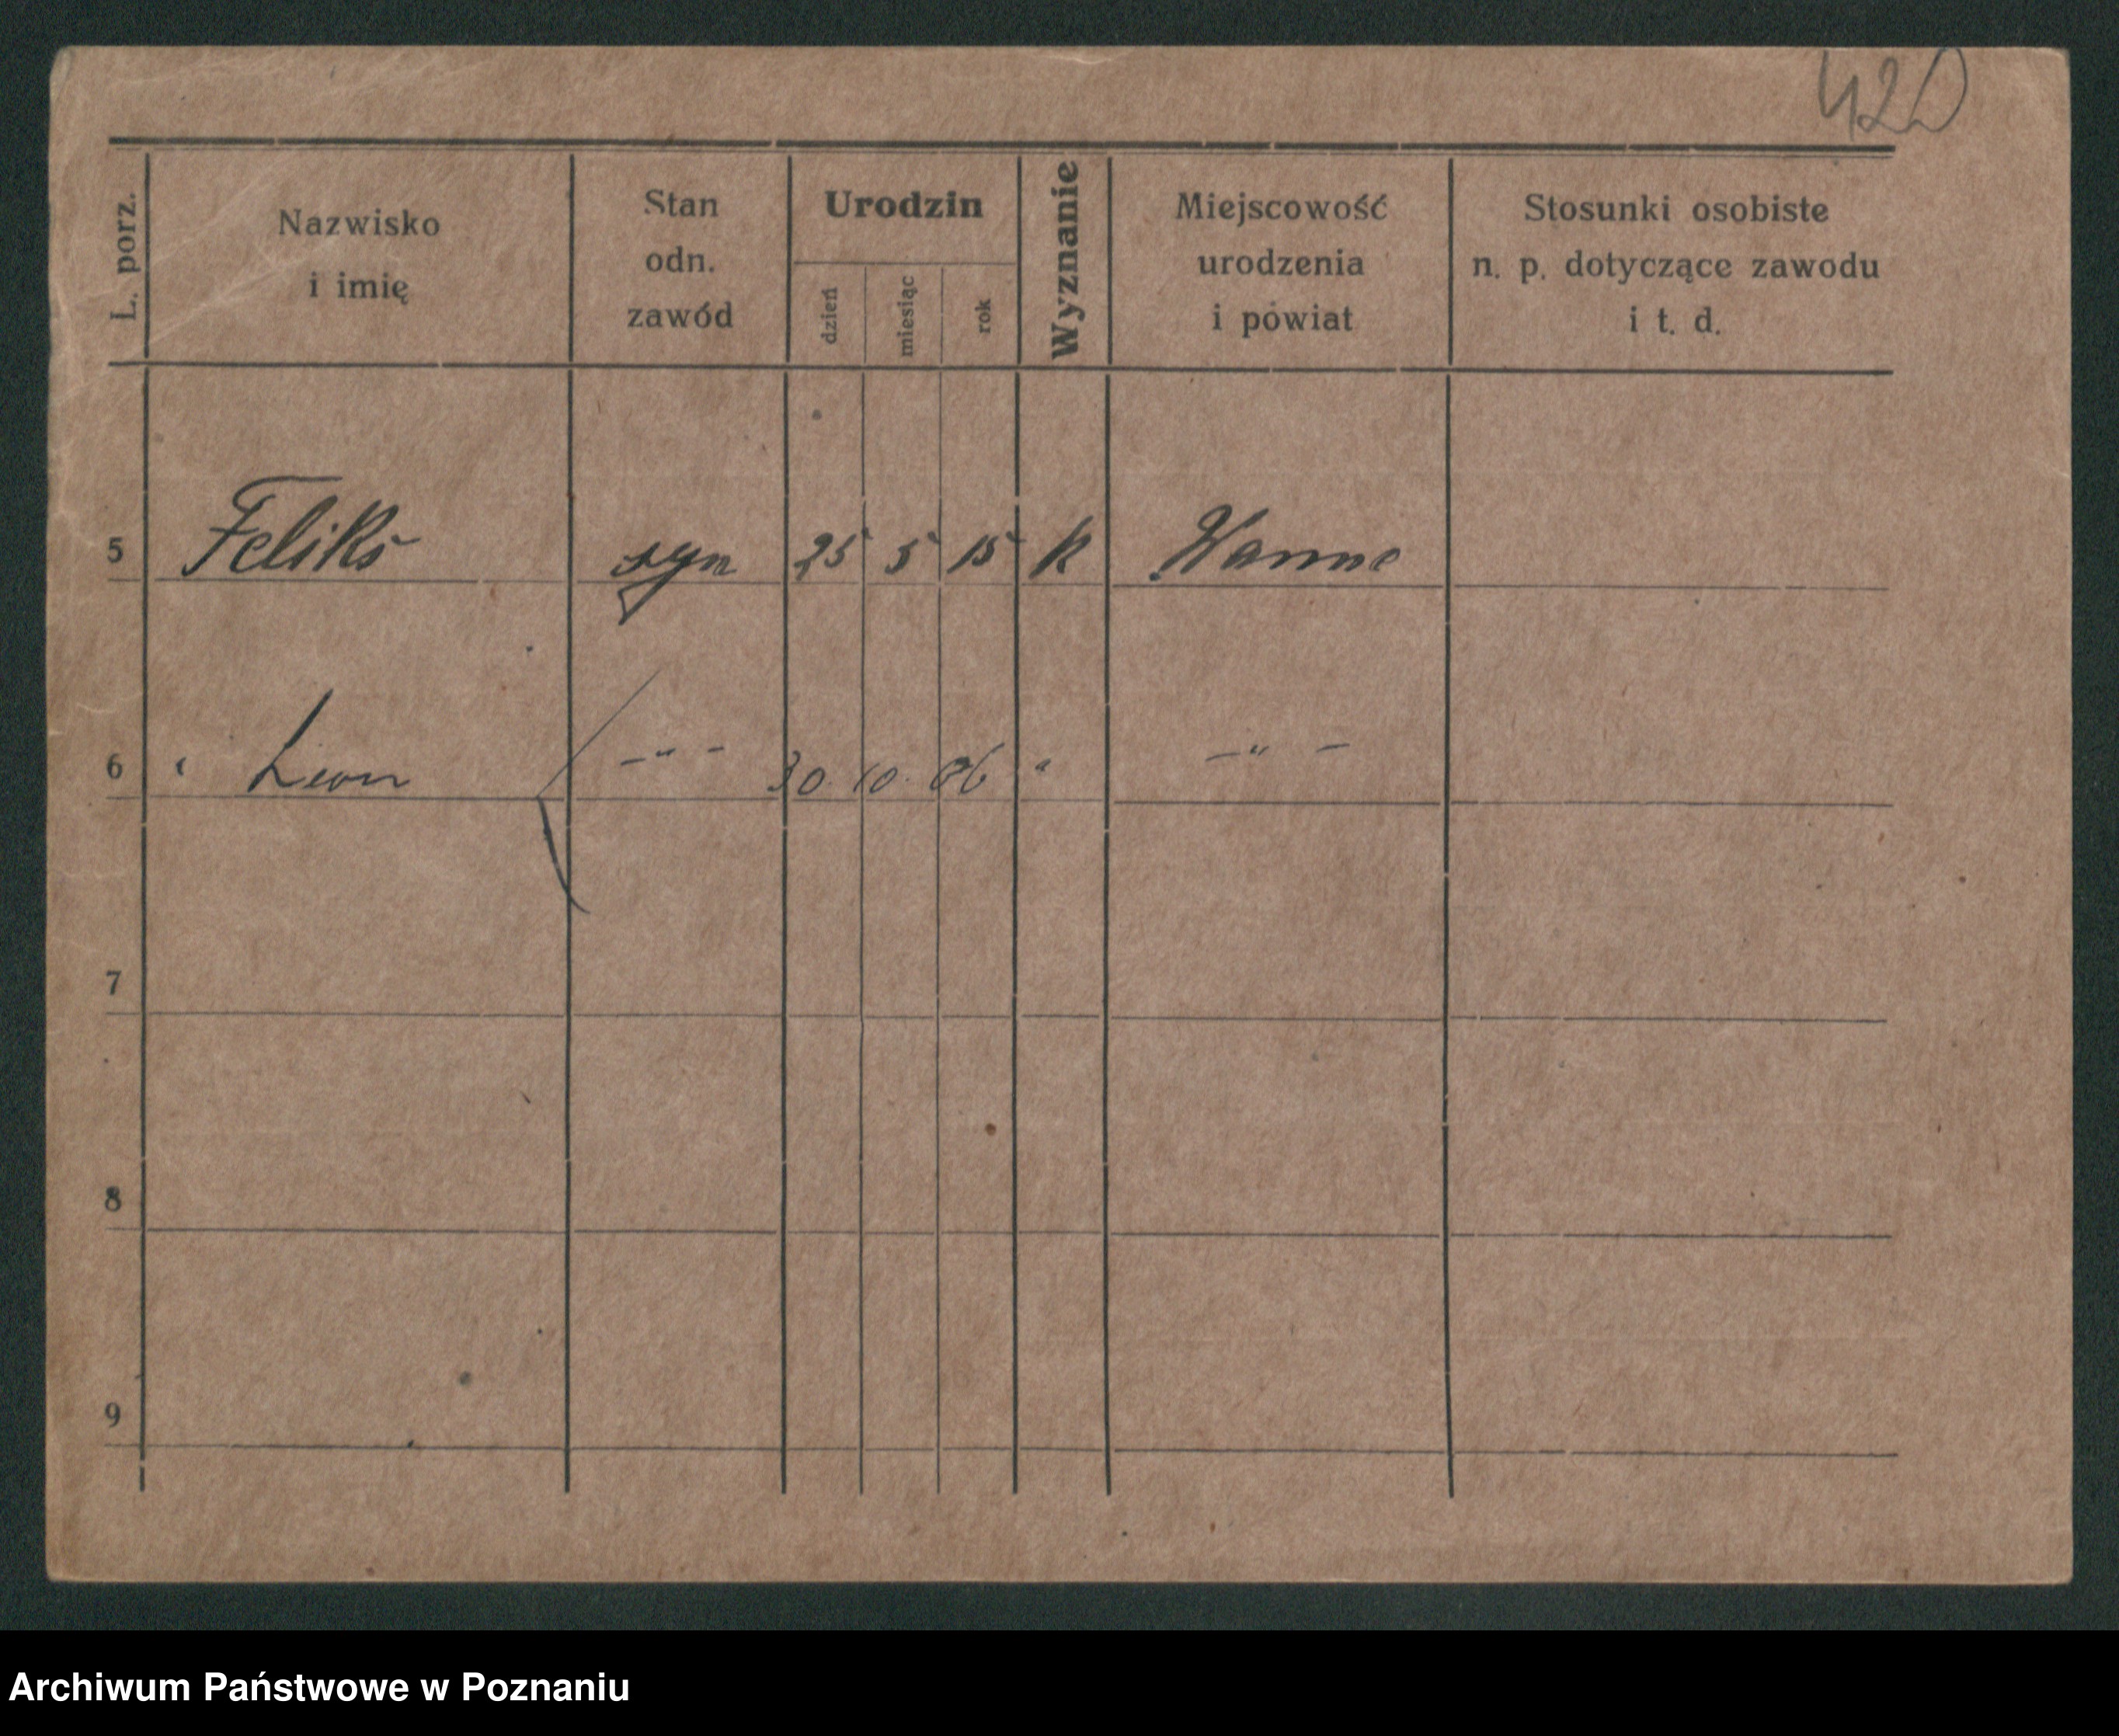 420
L. porz.
Nazwisko
i imię
Stan
odn.
zawód
Urodzin
dzień
miesiąc
rok
Wyznanie
Miejscowość
urodzenia
i powiat
Stosunki osobiste
n. p. dotyczące zawodu
i t. d.
5 Feliks syn 25 5 15 k Wanne
6 " Leon -"- 30. 10. 06 " -"-
7
8
9
Archiwum Państwowe w Poznaniu